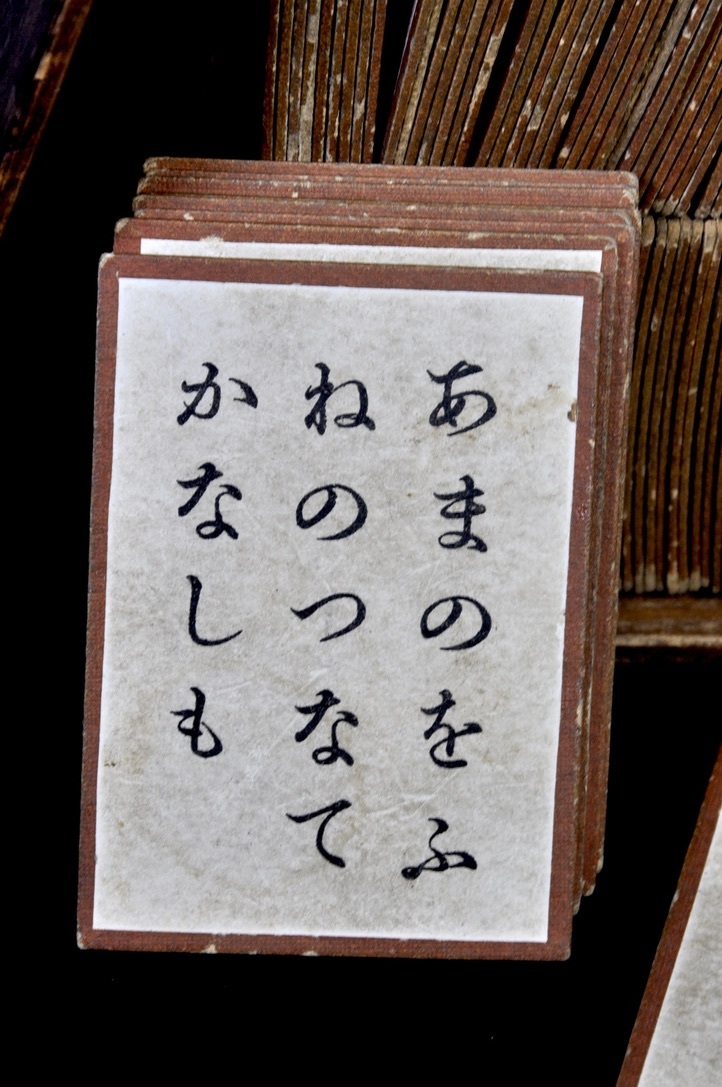 あまのをふ
ねのつなて
かなしも